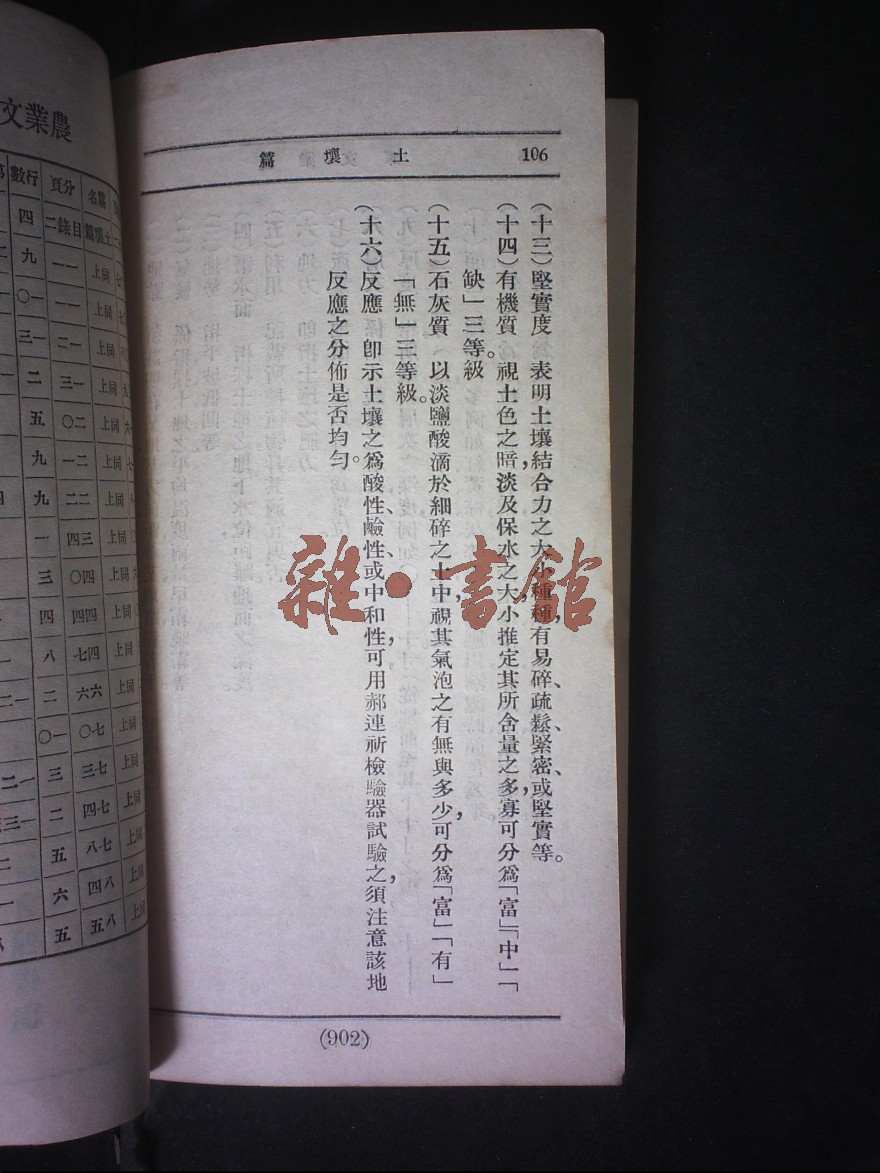 106
土壤篇
（十三）堅實度　表明土壤結合力之大小，種種有易碎、疏鬆、緊密、或堅實等。
（十四）有機質　視土色之暗淡，及保水之大小，推定其所含量之多寡，可分爲「富」「中」「
缺」三等級。
（十五）石灰質　以淡鹽酸滴於細碎之土中，視其氣泡之有無與多少，可分爲「富」「有」
「無」三等級。
（十六）反應　卽示土壤之爲酸性、鹼性、或中和性，可用郝連祈檢驗器試驗之，須注意該地
反應之分佈是否均勻。
(902)
雜·書館
農業文
篇名
分頁
行數
土壤篇
目錄二
四
同上
一一
九
同上
一一
一〇
同上
一二
一三
同上
一三
二
同上
二〇
五
同上
二一
九
同上
二二
九
同上
三四
一
同上
四〇
三
同上
四四
四
同上
四七
八
同上
六六
二
同上
七〇
一〇
同上
七三
三
同上
七四
二
同上
七八
五
同上
八四
六
同上
八五
五